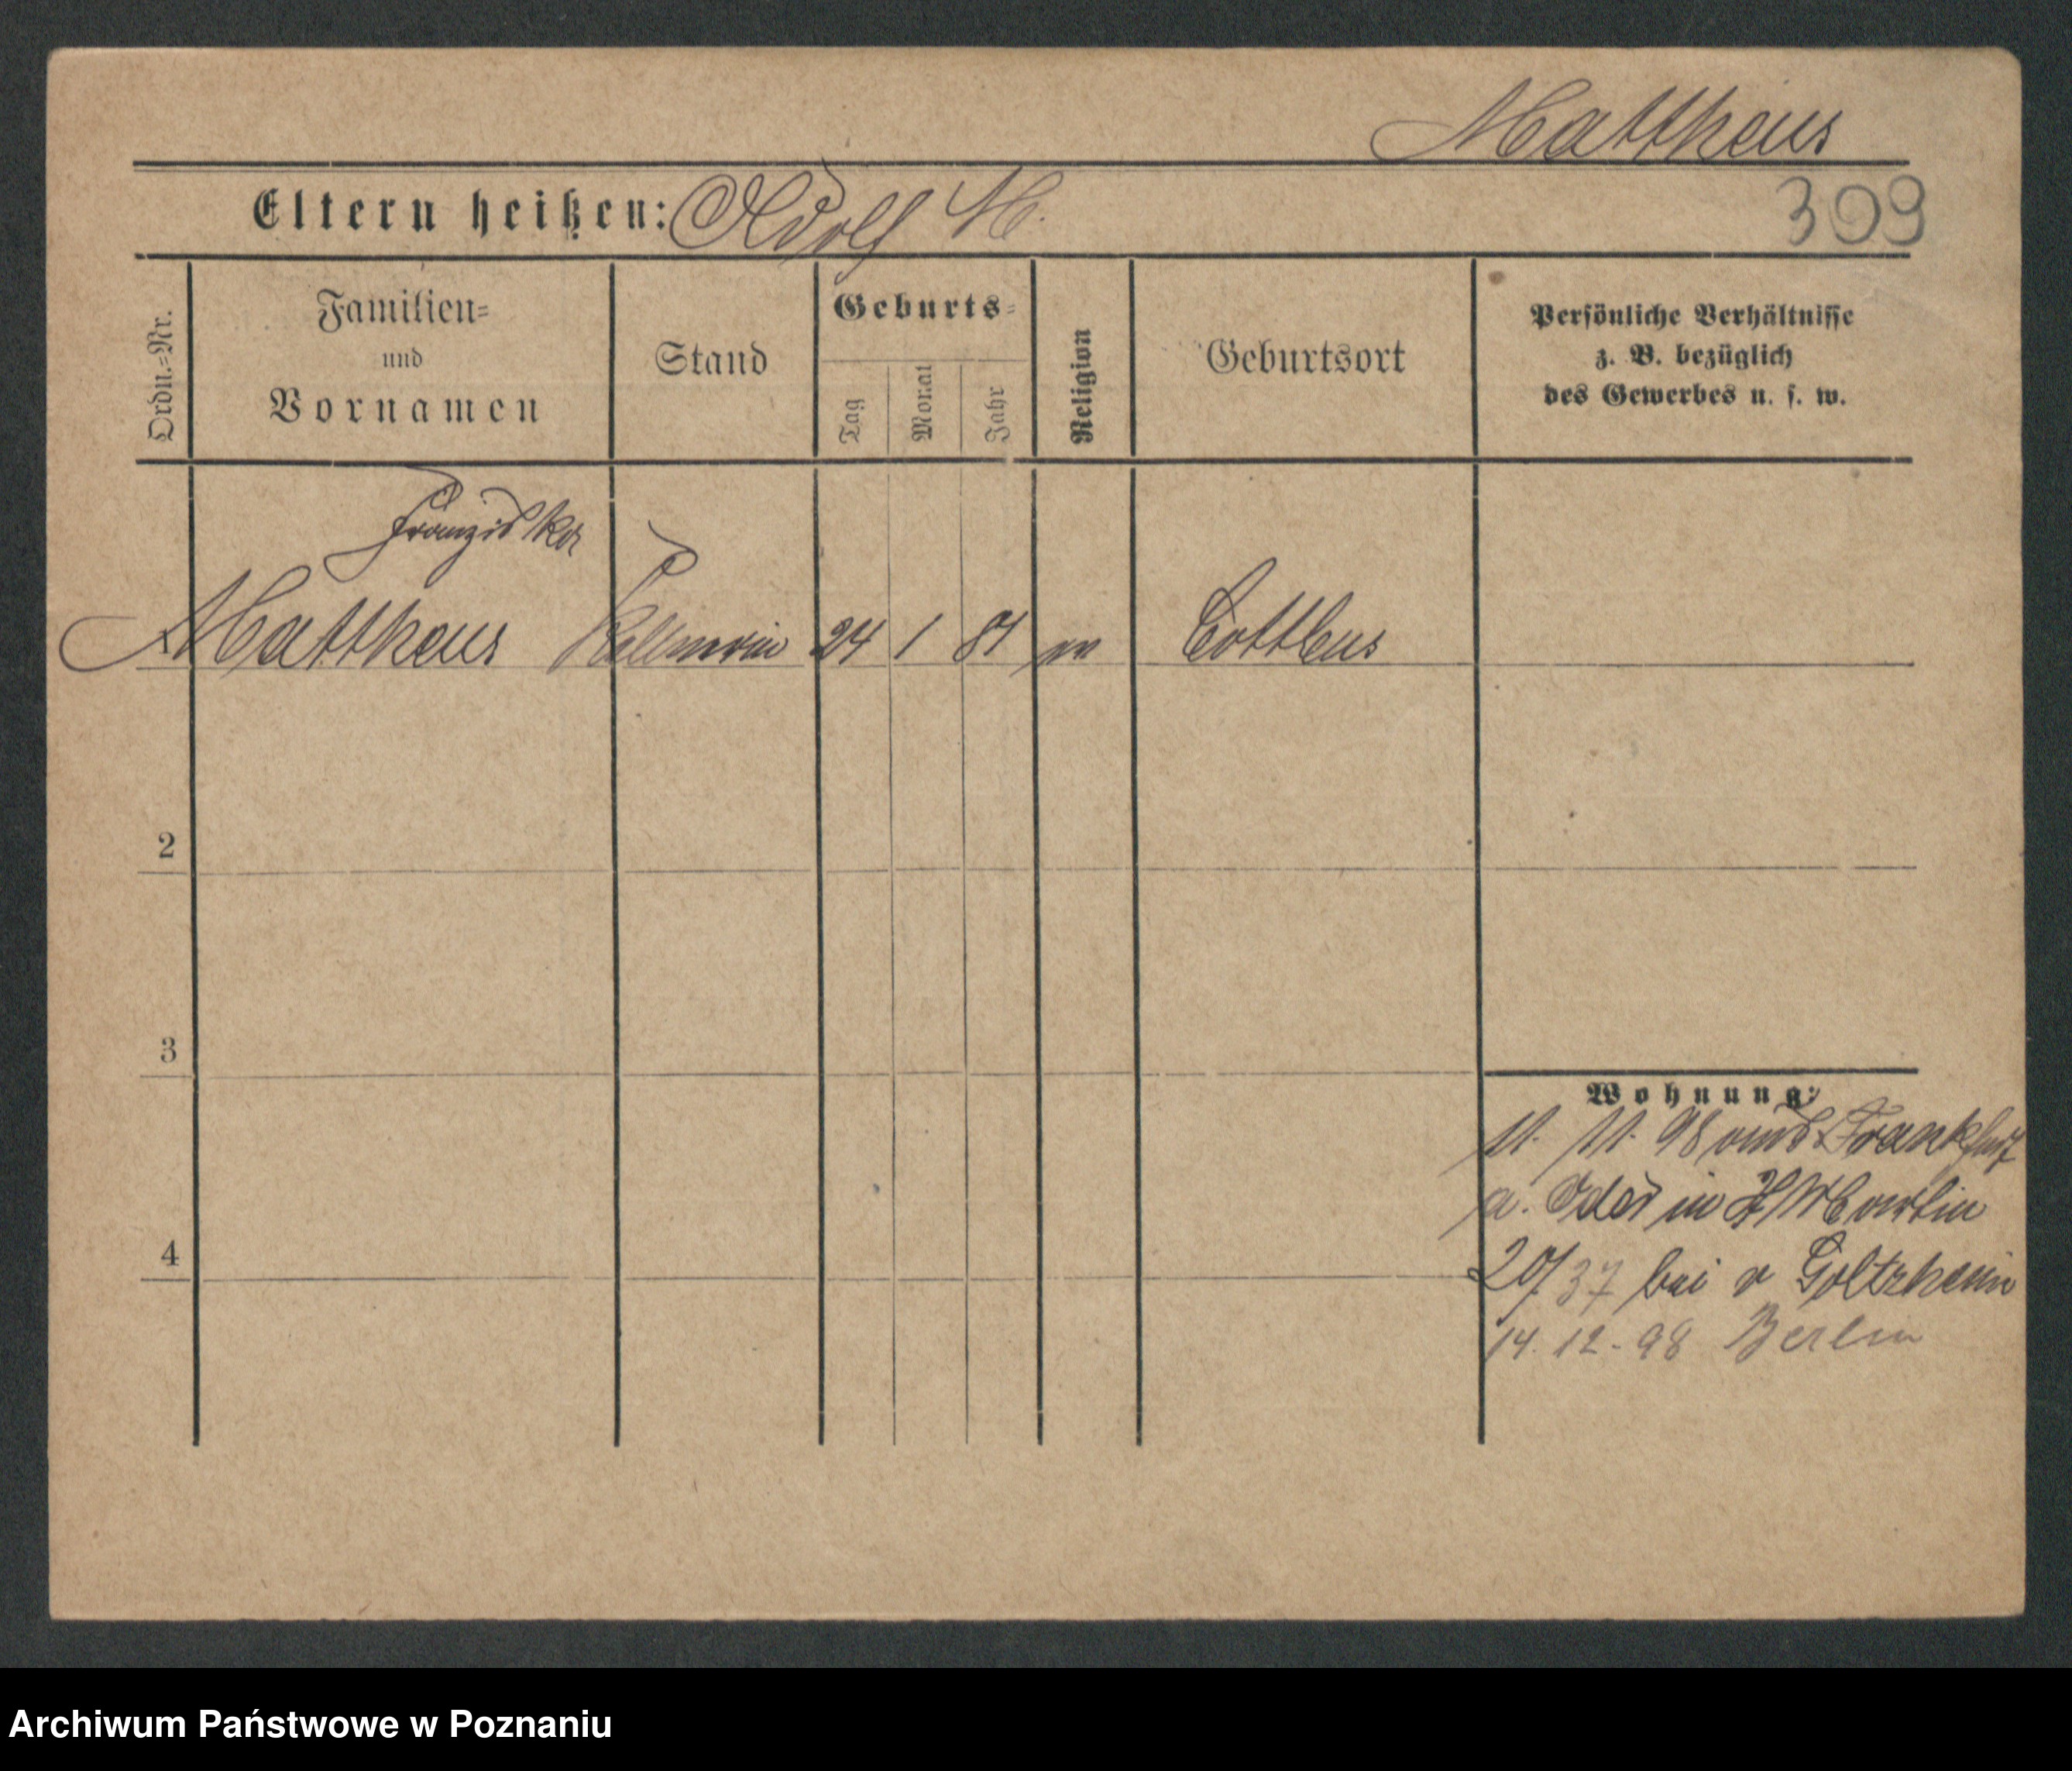 Mattheus
Eltern heißen: Adolf M.
309
Ordn.=Nr.
Familien=
und
Vornamen
Stand
Geburts=
Tag
Monat
Jahr
Religion
Geburtsort
Persönliche Verhältnisse
z. B. bezüglich
des Gewerbes u. s. w.
Franziska
1 Mattheus Kellnerin 24 1 81 Cottbus
2
3
4
Wohnung:
11. 11. 98 Frankfurt
a. Oder in St Martin
20/37 bei v Goltzheim
14. 12. 98 Berlin
Archiwum Państwowe w Poznaniu